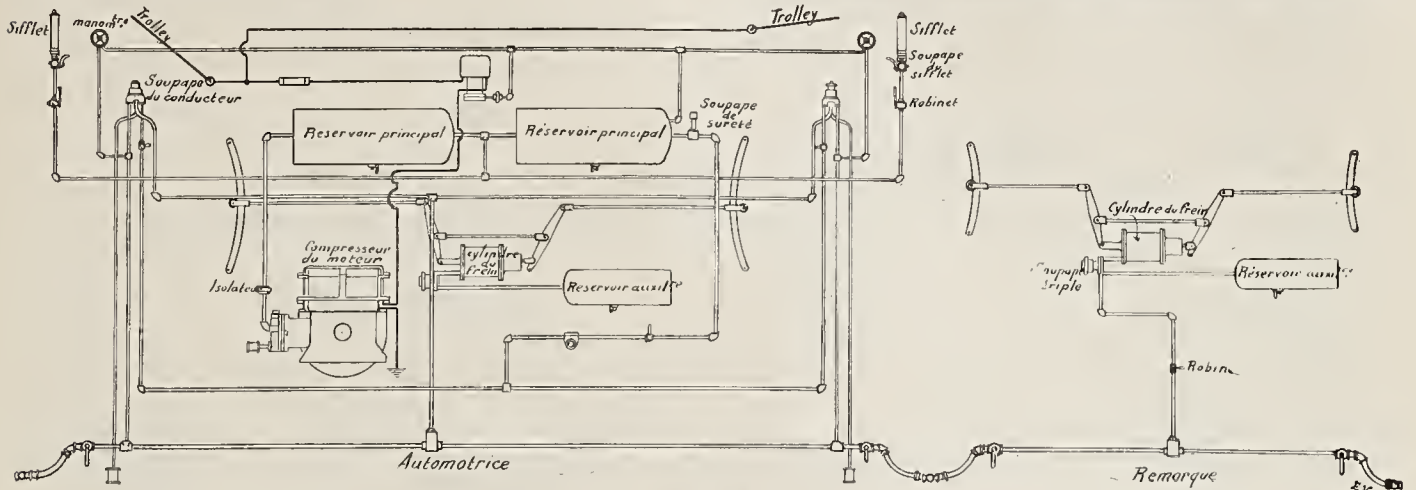 Sifflet
manomtre
Trolley
Trolley
Sifflet
Soupape
du
sifflet
Robinet
Soupape
du conducteur
Réservoir principal
Réservoir principal
Soupape
de
sureté
Compresseur
du moteur
Isolateur
cylindre
du
frein
Réservoir auxilre
Cylindre du frein
triple
Réservoir auxre
Robin
Automotrice
Remarque